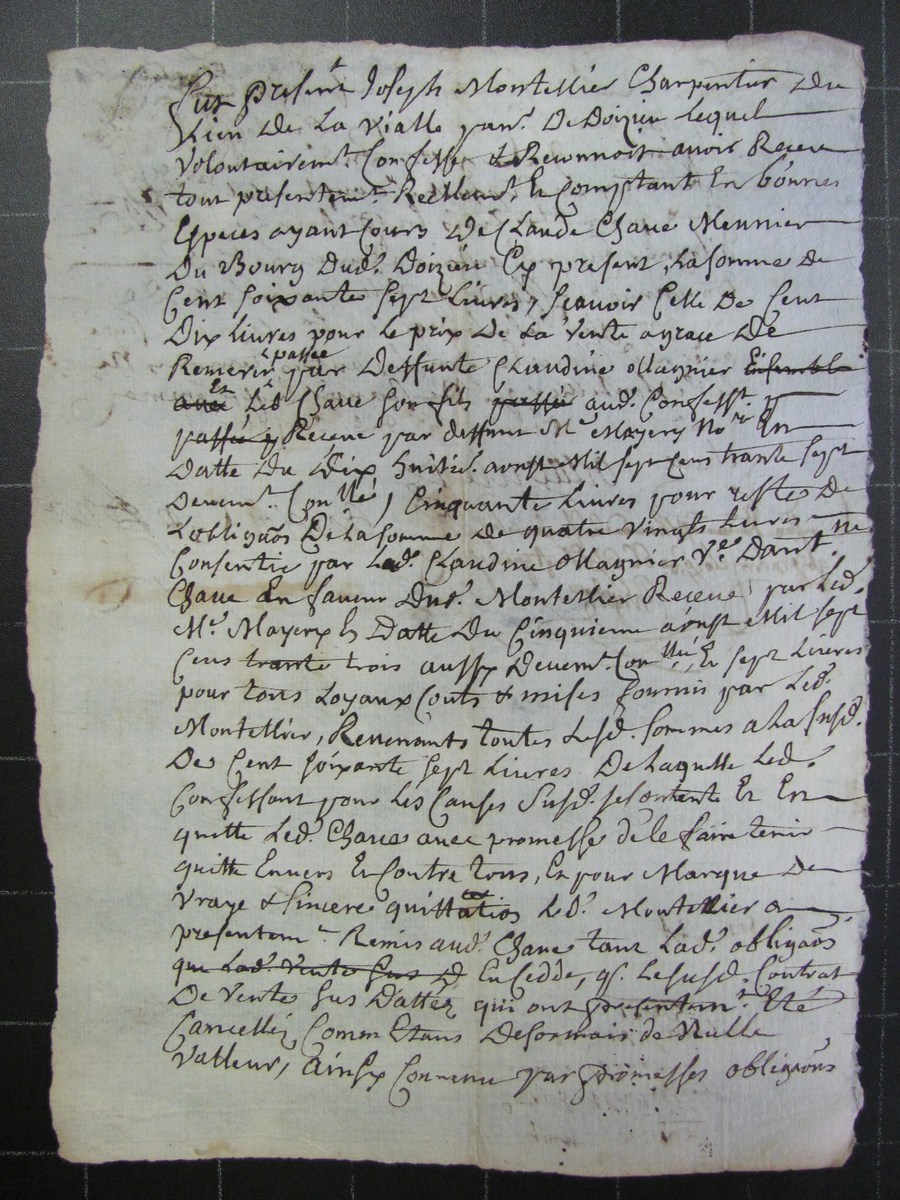 Fut present Joseph Montellier Charpentier du
Lieu de La Vialle parr. De Doizieu lequel
Volontairemt. Confesse & Reconnoit avoir Receu
tout presentemt. Reellemt. & Comptant En bonnes
Especes ayant Cours de Claude Chave Meunier
Du Bourg Dud. Doizieu Cy present, La somme de
Cent soixante sept Livres, scavoir Celle de Cent
Dix Livres pour le prix de La Vente a grace de
Remerer passée par Deffunte Claudine Ollagnier Ensemble
avec Et Led. Chave son fils passée aud. Confesst.
passée Receue par deffunt Me. Mayery Nore. En
Datte du Dix huitie. aoust Mil sept Cens trante sept
Deuemt. Conllé, Cinquante Livres pour reste de
L'obligaôn De La somme de quatre vingts Livres
Consentie par Lad. Claudine Ollagnier Ve. D'ant.ne
Chave En faveur Dud. Montellier Receue par Led.
Me. Mayery Le Datte Du Cinquieme aoust Mil sept
Cens trante trois aussy Deuemt. Conllée, Et sept Livres
pour tous Loyaux Couts & mises fournis par Led.
Montellier, Revenants toutes Lesd. sommes a La susd.
De Cent soixante sept Livres De Laquelle Led.
Confessant pour Les Causes susd. se Contente Et En
quitte Led. Chave avec promesse de le faire tenir
quitte Envers Et Contre tous, Et pour Marque de
Vraye & sincere quittance Led. Montellier a
presentemt. Remis aud. Chave tant Lad. obligaôn
que Lad. Vente sus d. En Cedde, q. Le susd. Contrat
De Vente sus Datté, qui ont presentemt. Eté
Cancellés Comm Etans Desormais de Nulle
Valleur, Ainsy Convenu par promesses obligaôns